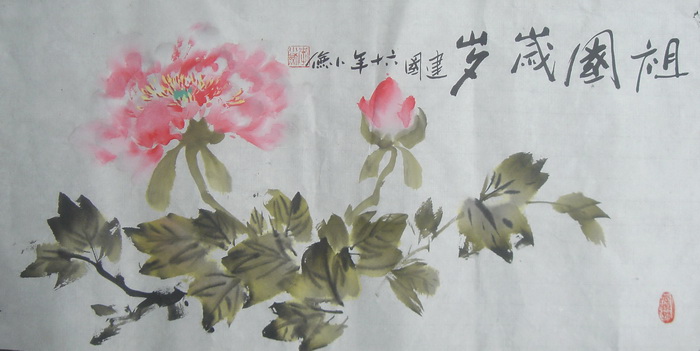 祖國嵗岁
建國六十年